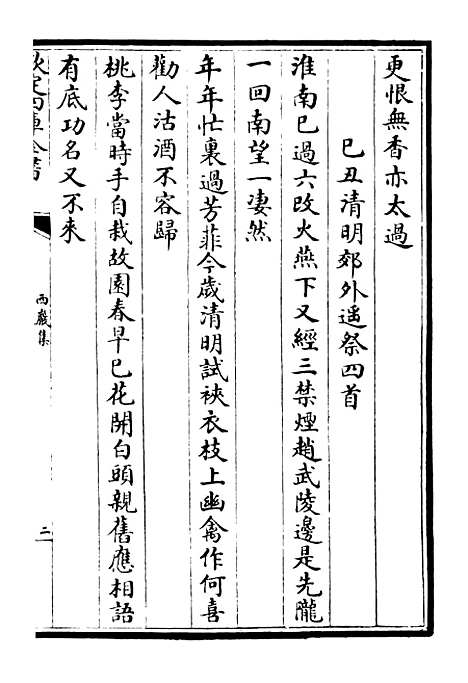 更恨無香亦太過
己丑清明郊外遥祭四首
淮南已過六改火燕下又經三禁煙趙武陵邊是先隴
一回南望一凄然
年年忙裏過芳菲今歲清明試裌衣枝上幽禽作何喜
勸人沽酒不容歸
桃李當時手自栽故園春早已花開白頭親舊應相語
有底功名又不來
欽定四庫全書
西巖集
三